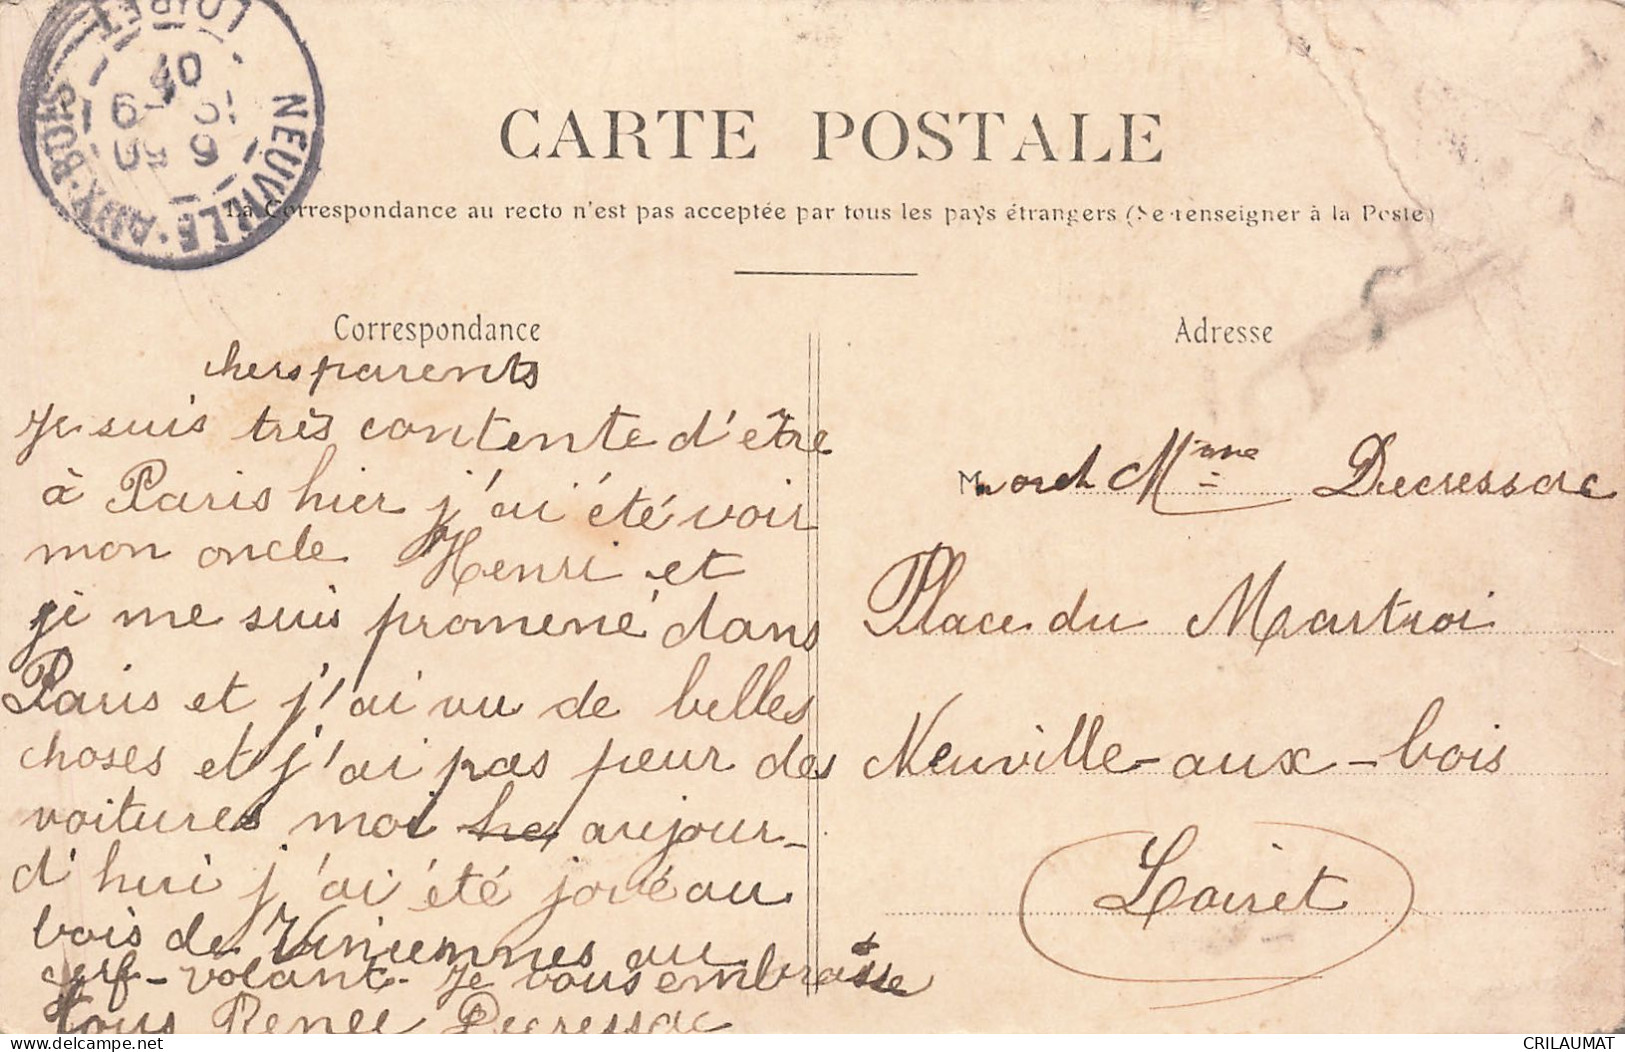 LOIRET
NEUVILLE-AUX-BOIS
CARTE POSTALE
La Correspondance au recto n'est pas acceptée par tous les pays étrangers (Se renseigner à la Poste)
Correspondance
chers parents
Je suis très contente d'être
à Paris hier j'ai été voir
mon oncle Henri et
je me suis promené dans
Paris et j'ai vu de belles
choses et j'ai pas peur des
voitures moi aujour-
d'hui j'ai été joué au
bois de Vincennes au
cerf-volant. Je vous embrasse
tous Renée Decressac
Adresse
M Mme Decressac
Place du Martroi
Neuville-aux-bois
Loiret
delcampe.net
CRILAUMAT